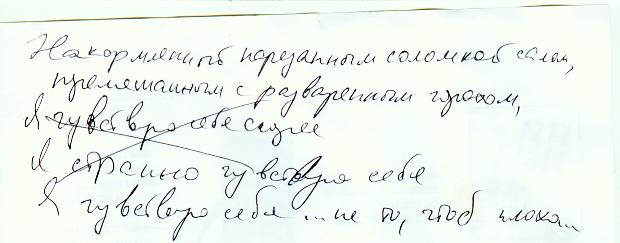 Накормленный нарезанным соломкой салом,
перемешанным с разваренным горохом,
Я чувствую себя
Я странно чувствую себя
Я чувствую себя ... не то, чтоб плохо...